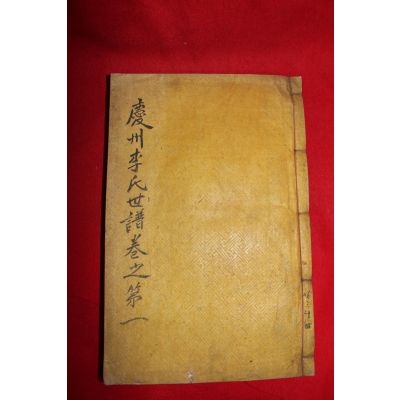 慶州李氏世譜卷之第一